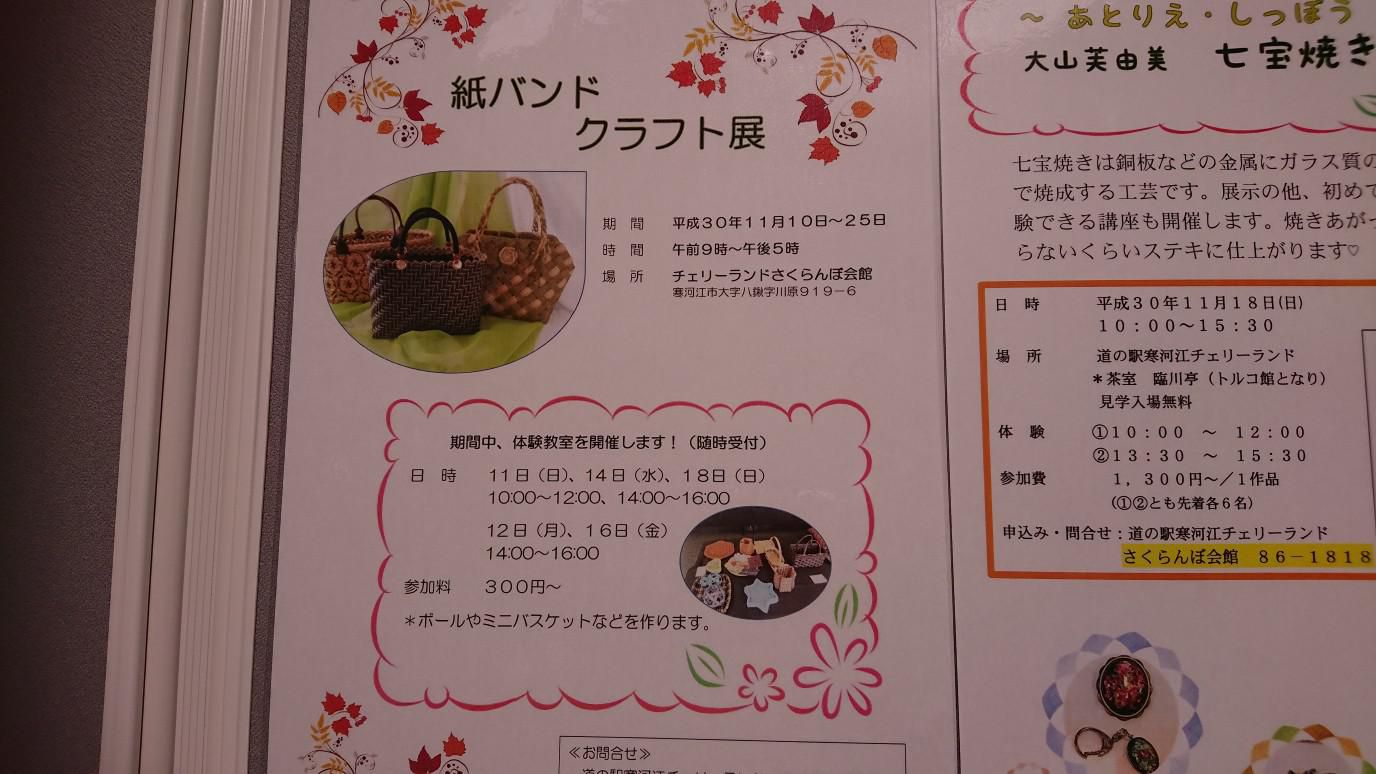 紙バンド
クラフト展
期　間　平成30年11月10日～25日
時　間　午前9時～午後5時
場　所　チェリーランドさくらんぼ会館
寒河江市大字八鍬字川原919－6
期間中、体験教室を開催します！（随時受付）
日　時　11日（日）、14日（水）、18日（日）
10:00～12:00、14:00～16:00
12日（月）、16日（金）
14:00～16:00
参加料　300円～
＊ボールやミニバスケットなどを作ります。
≪お問合せ≫
～ あとりえ・しっぽう
大山芙由美　七宝焼き
七宝焼きは銅板などの金属にガラス質の
で焼成する工芸です。展示の他、初めて
験できる講座も開催します。焼きあがっ
らないくらいステキに仕上がります♡
日　時　平成30年11月18日(日)
10：00～15：30
場　所　道の駅寒河江チェリーランド
＊茶室　臨川亭（トルコ館となり）
見学入場無料
体　験　①10：00　～　12：00
②13：30　～　15：30
参加費　1，300円～／1作品
（①②とも先着各6名）
申込み・問合せ：道の駅寒河江チェリーランド
さくらんぼ会館　86－1818